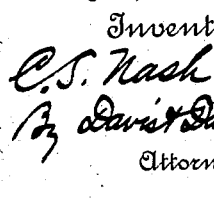 Invent
C. S. Nash
By Davis & Da
Attorn